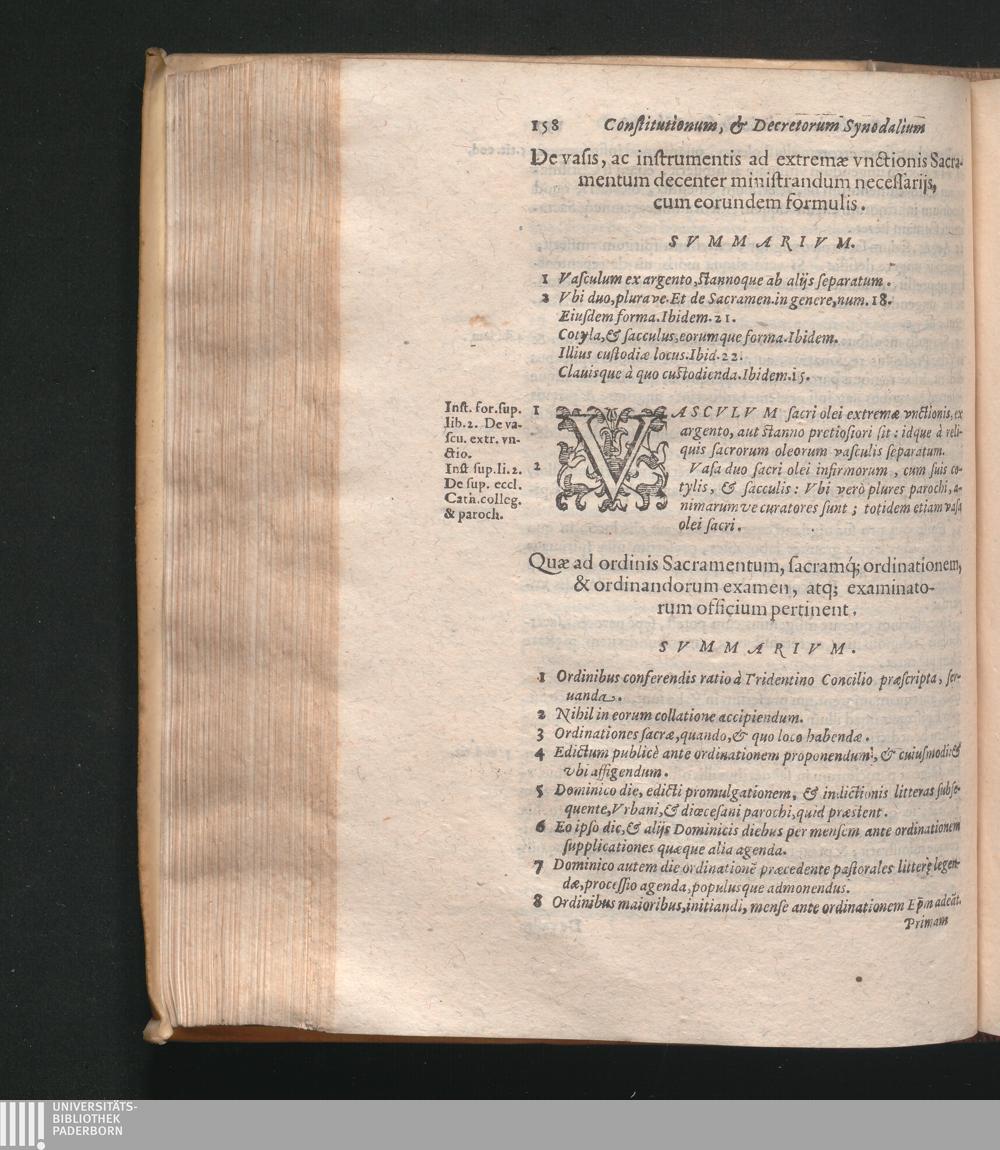 158 Constitutionum, & Decretorum Synodalium
De vasis, ac instrumentis ad extremæ vnctionis Sacra-
mentum decenter ministrandum necessarijs,
cum eorundem formulis.
SVMMARIVM.
1 Vasculum ex argento, stannoque ab alijs separatum.
2 Vbi duo, plurave. Et de Sacramen. in genere, num. 18.
Eiusdem forma. Ibidem. 21.
Cotyla, & sacculus, eorumque forma. Ibidem.
Illius custodiæ locus. Ibid. 22.
Clauisque à quo custodienda. Ibidem. 15.
Inst. for. sup.
lib. 2. De va-
scu. extr. vn-
ctio.
Inst sup. li. 2.
De sup. eccl.
Cath. colleg.
& paroch.
1 VASCVLVM sacri olei extremæ vnctionis, ex
argento, aut stanno pretiosiori sit: idque à reli-
quis sacrorum oleorum vasculis separatum.
2 Vasa duo sacri olei infirmorum, cum suis co-
tylis, & sacculis: Vbi verò plures parochi, a-
nimarumve curatores sunt; totidem etiam vasa
olei sacri.
Quæ ad ordinis Sacramentum, sacramq́; ordinationem,
& ordinandorum examen, atq; examinato-
rum officium pertinent.
SVMMARIVM.
1 Ordinibus conferendis ratio à Tridentino Concilio præscripta, ser-
uanda.
2 Nihil in eorum collatione accipiendum.
3 Ordinationes sacræ, quando, & quo loco habendæ.
4 Edictum publicè ante ordinationem proponendum, & cuiusmodi: &
vbi affigendum.
5 Dominico die, edicti promulgationem, & indictionis litteras subse-
quente, Vrbani, & diœcesani parochi, quid præstent.
6 Eo ipso die, & alijs Dominicis diebus per mensem ante ordinationem
supplicationes quæque alia agenda.
7 Dominico autem die ordinationẽ præcedente pastorales litterę legen-
dæ, processio agenda, populusque admonendus.
8 Ordinibus maioribus, initiandi, mense ante ordinationem Ep̃m adeãt.
Primam
UNIVERSITÄTS-
BIBLIOTHEK
PADERBORN